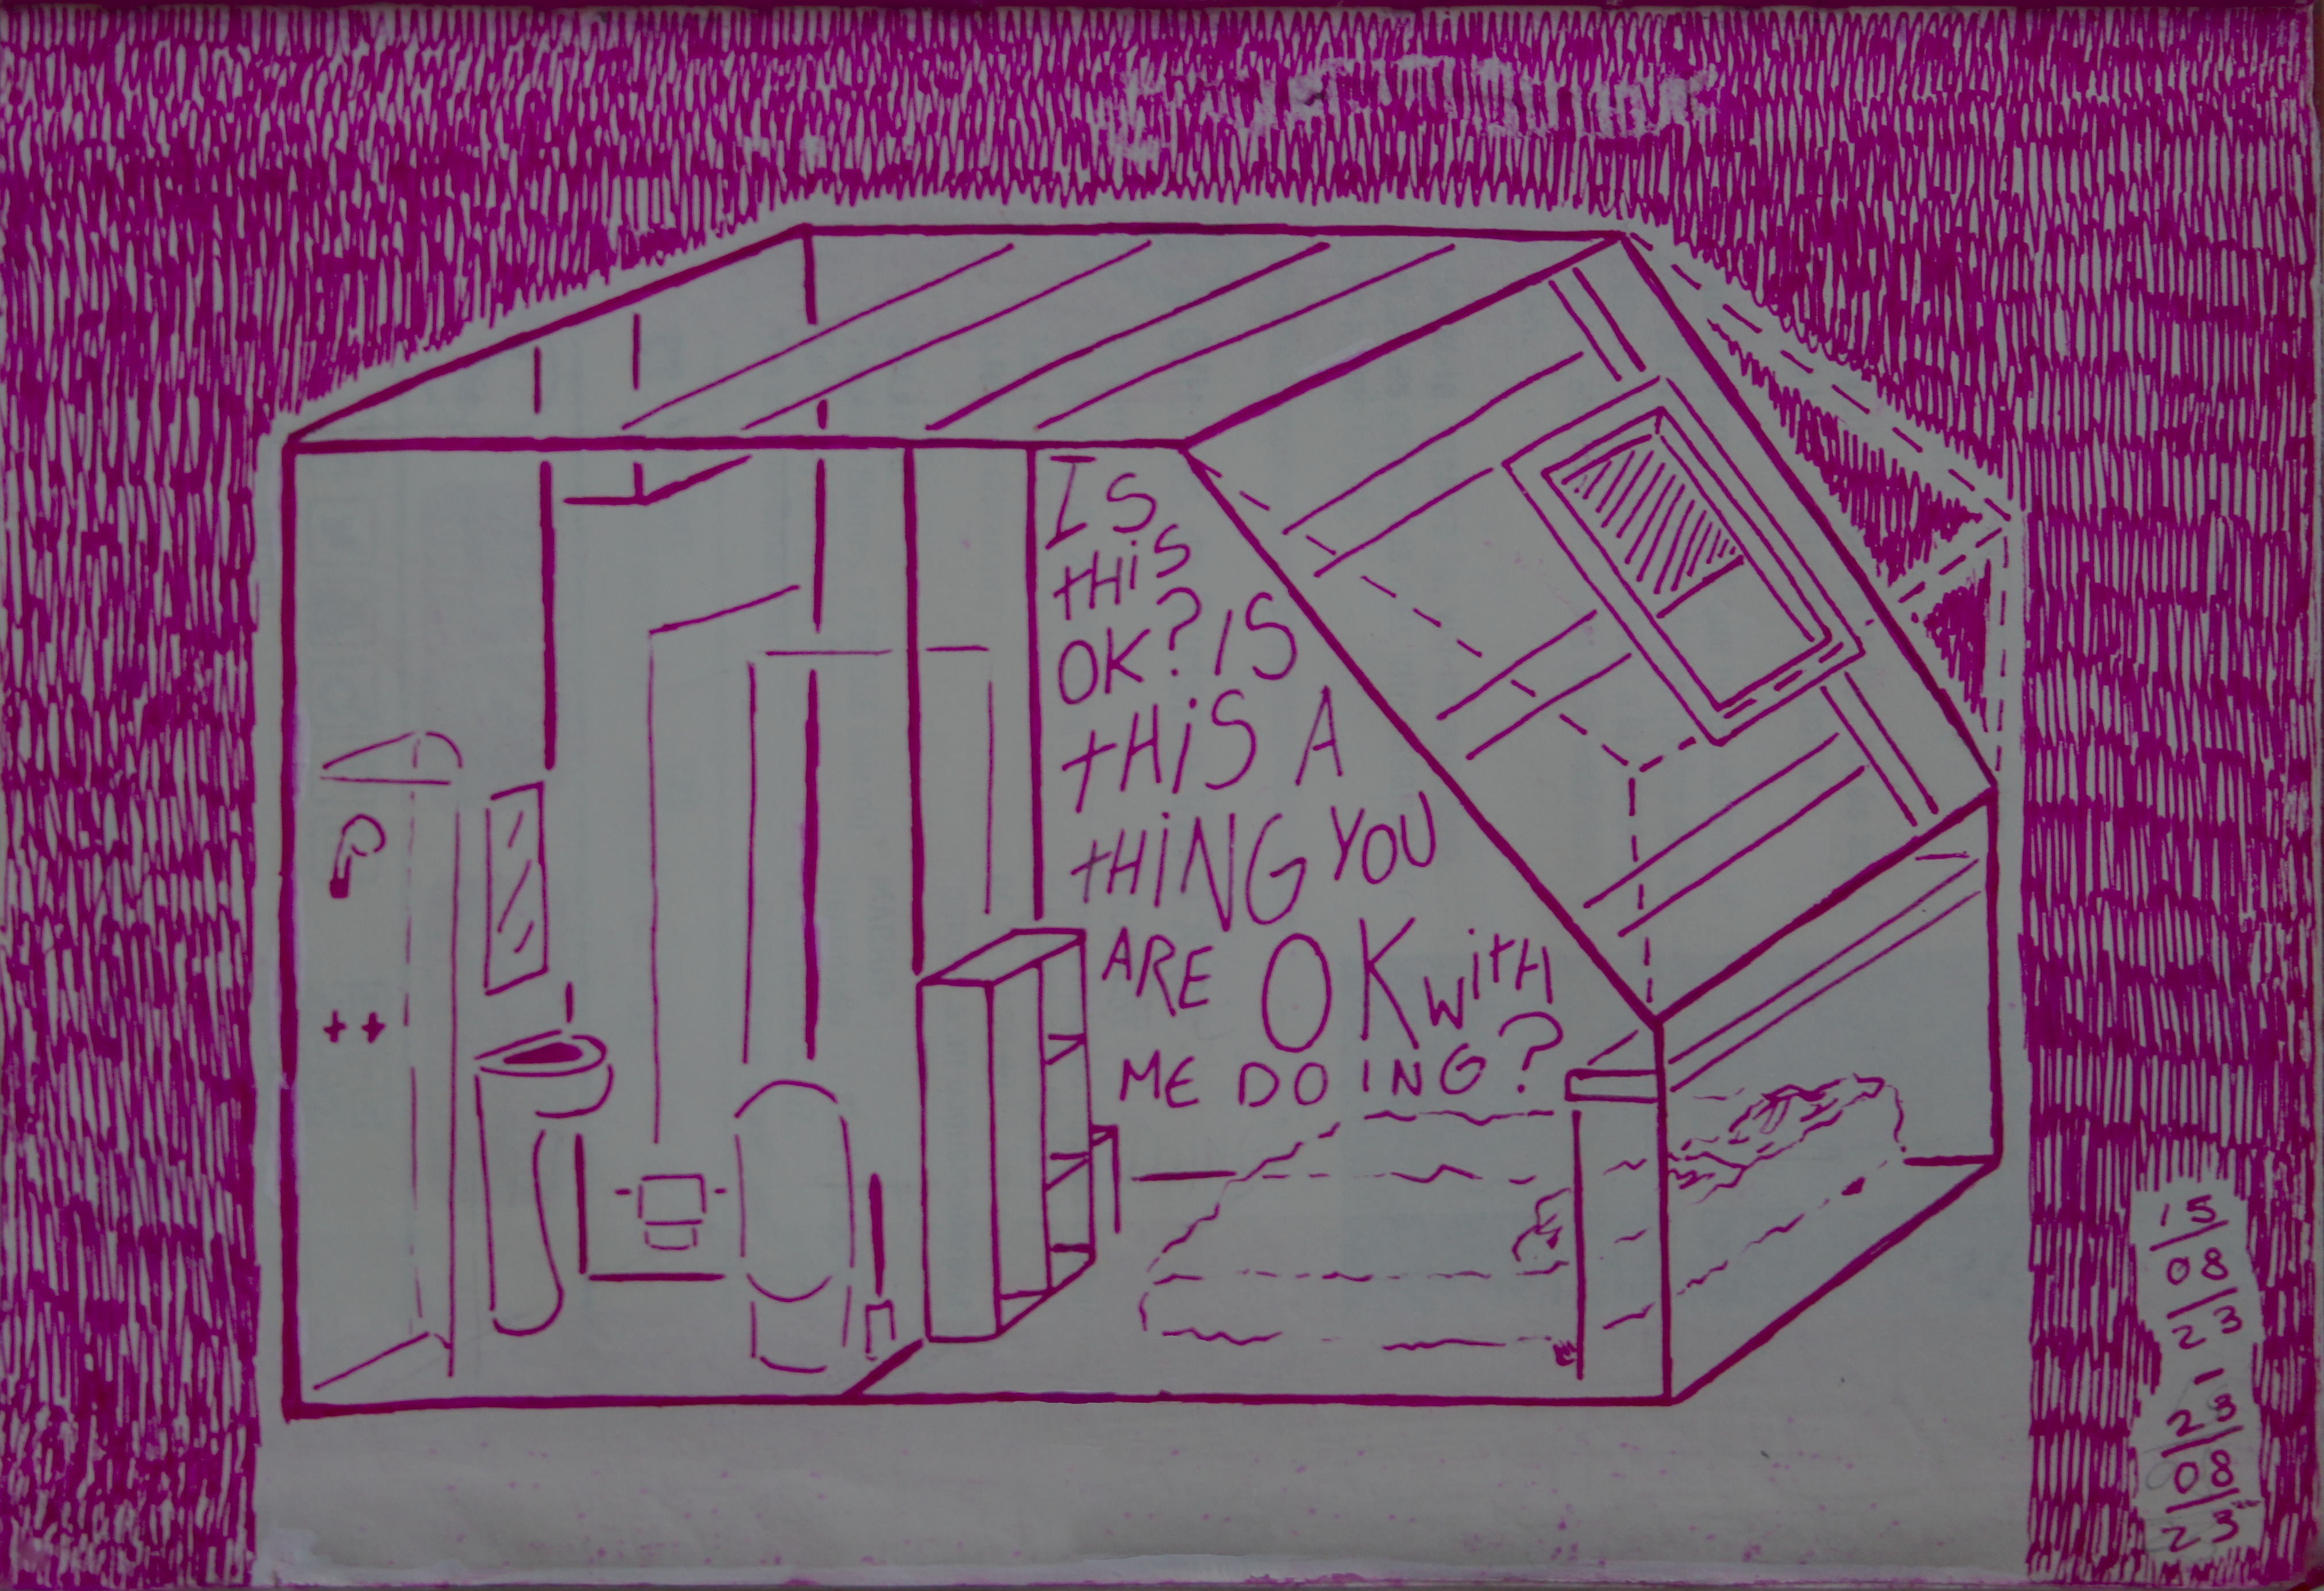 Is
this
OK? IS
tHiS A
tHiNG YOU
ARE OK witH
ME DOING?
15
08
23
1
23
08
23